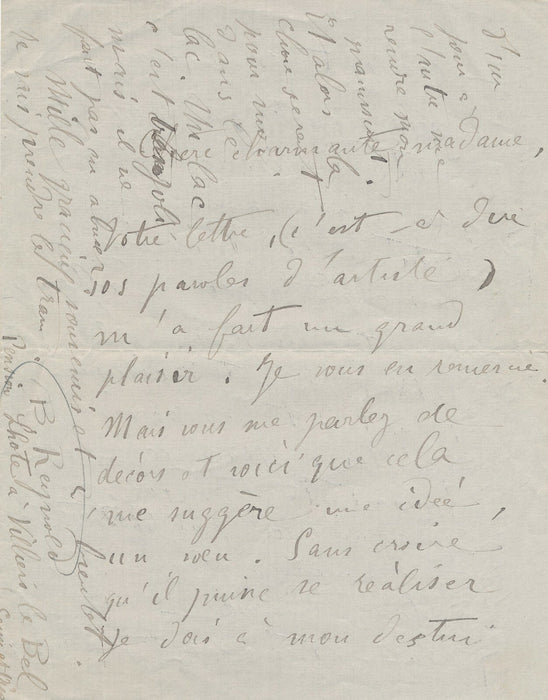 Chère charmante madame,
Votre lettre, (c'est à dire
vos paroles d'artiste)
m'a fait un grand
plaisir. Je vous en remercie.
Mais vous me parlez de
décors et voici que cela
me suggère une idée,
un voeu. Sans croire
qu'il puisse se réaliser
je dois à mon destin
D'un
pour
l'autre
rendre mon
puissent
Et alors la
chose serait
pour moi
dans le
lac. Un lac
c'est joli
mais il ne
faut pas en abuser
Mille gracieux souvenirs et à bientôt.
Je vais prendre le tram.
B Reynold
Pension Lhote à Villiers le Bel